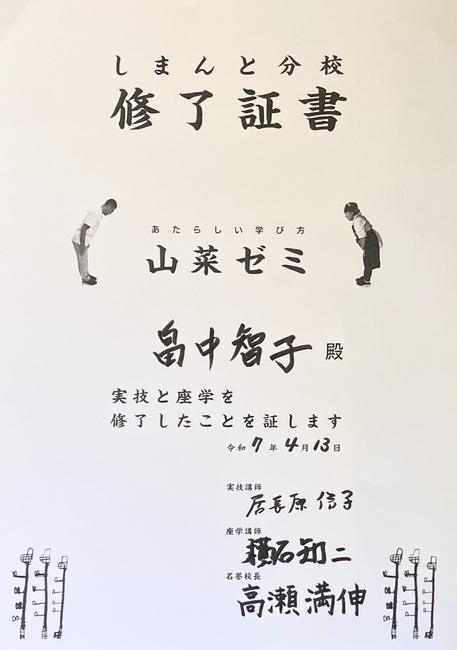 しまんと分校
修了証書
あたらしい学び方
山菜ゼミ
畠中智子 殿
実技と座学を
修了したことを証します
令和7年4月13日
実技講師
居長原信子
座学講師
横石知二
名誉校長
高瀬満伸